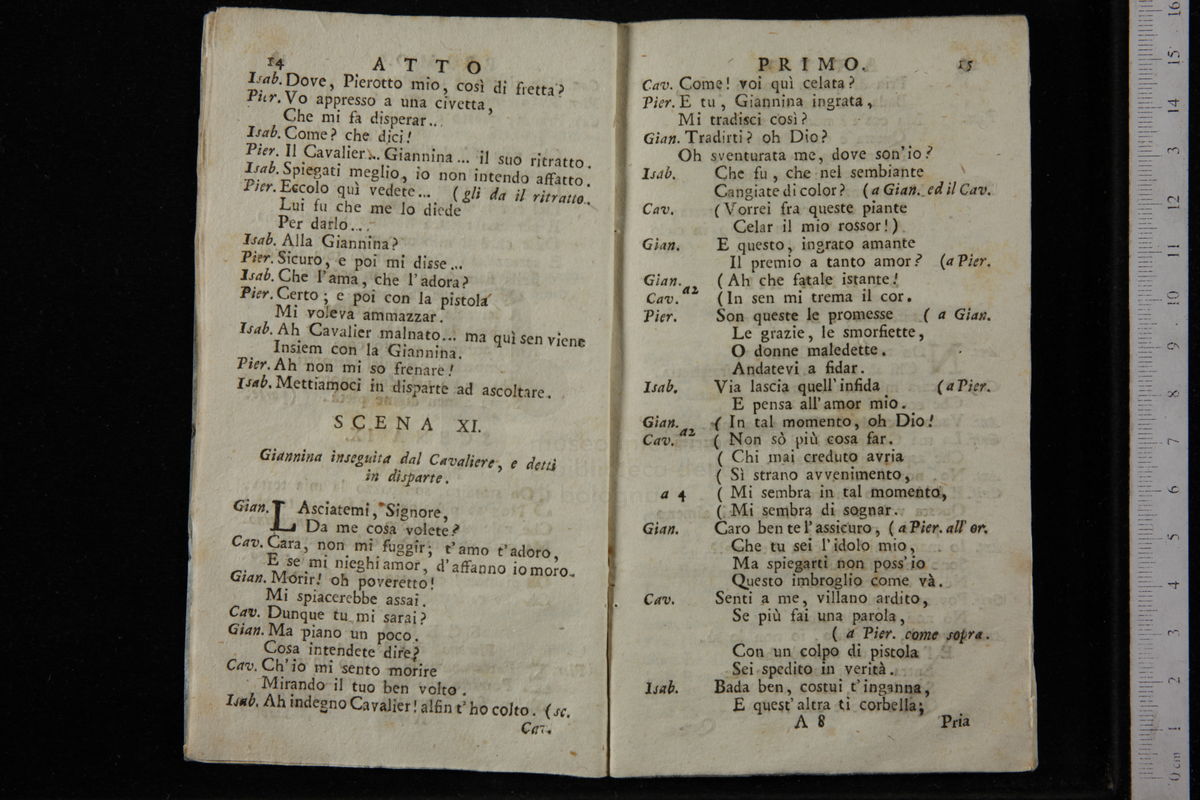 14 ATTO
Isab. Dove, Pierotto mio, così di fretta?
Pier. Vo appresso a una civetta,
Che mi fa disperar...
Isab. Come? che dici!
Pier. Il Cavalier... Giannina... il suo ritratto.
Isab. Spiegati meglio, io non intendo affatto.
Pier. Eccolo quì vedete... (gli da il ritratto.
Lui fu che me lo diede
Per darlo...
Isab. Alla Giannina?
Pier. Sicuro, e poi mi disse...
Isab. Che l'ama, che l'adora?
Pier. Certo; e poi con la pistola
Mi voleva ammazzar.
Isab. Ah Cavalier malnato... ma quì sen viene
Insiem con la Giannina.
Pier. Ah non mi so frenare!
Isab. Mettiamoci in disparte ad ascoltare.
SCENA XI.
Giannina inseguita dal Cavaliere, e detti
in disparte.
Gian. LAsciatemi, Signore,
Da me cosa volete?
Cav. Cara, non mi fuggir; t'amo t'adoro,
E se mi nieghi amor, d'affanno io moro.
Gian. Morir! oh poveretto!
Mi spiacerebbe assai.
Cav. Dunque tu mi sarai?
Gian. Ma piano un poco.
Cosa intendete dire?
Cav. Ch'io mi sento morire
Mirando il tuo ben volto.
Isab. Ah indegno Cavalier! alfin t'ho colto. (sc.
Cav.
PRIMO. 15
Cav. Come! voi quì celata?
Pier. E tu, Giannina ingrata,
Mi tradisci così?
Gian. Tradirti? oh Dio?
Oh sventurata me, dove son'io?
Isab. Che fu, che nel sembiante
Cangiate di color? (a Gian. ed il Cav.
Cav. (Vorrei fra queste piante
Celar il mio rossor!)
Gian. E questo, ingrato amante
Il premio a tanto amor? (a Pier.
Gian. a2 (Ah che fatale istante!
Cav. (In sen mi trema il cor.
Pier. Son queste le promesse (a Gian.
Le grazie, le smorfiette,
O donne maledette.
Andatevi a fidar.
Isab. Via lascia quell'infida (a Pier.
E pensa all'amor mio.
Gian. a2 (In tal momento, oh Dio!
Cav. (Non sò più cosa far.
(Chi mai creduto avria
(Sì strano avvenimento,
a 4 (Mi sembra in tal momento,
(Mi sembra di sognar.
Gian. Caro ben te l'assicuro, (a Pier. all' or.
Che tu sei l'idolo mio,
Ma spiegarti non poss'io
Questo imbroglio come và.
Cav. Senti a me, villano ardito,
Se più fai una parola,
(a Pier. come sopra.
Con un colpo di pistola
Sei spedito in verità.
Isab. Bada ben, costui t'inganna,
E quest'altra ti corbella;
A 8 Pria